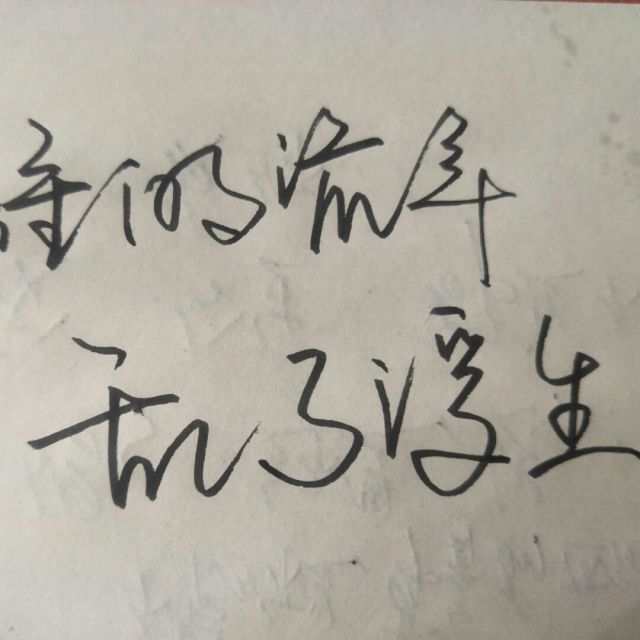 谁的流年
乱了浮生